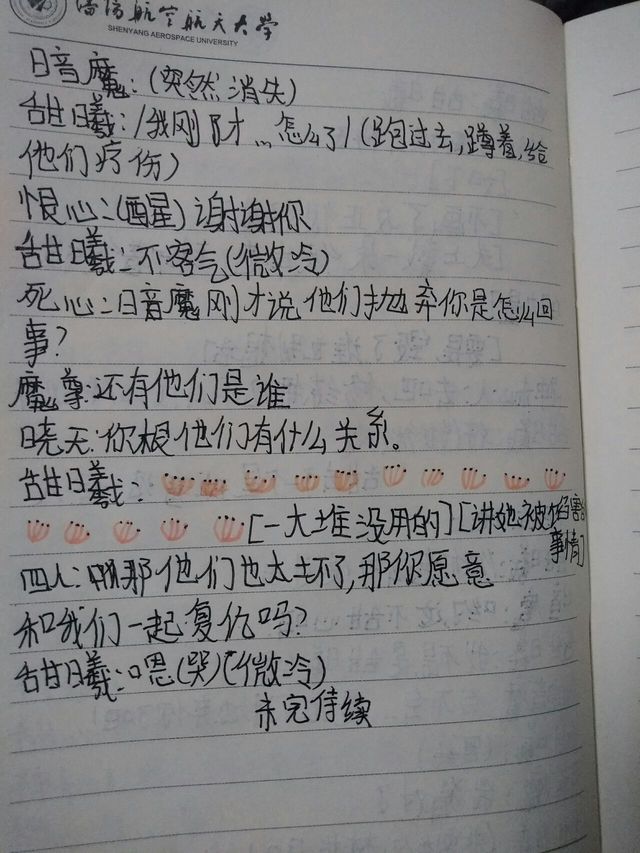 沈阳航空航天大学
SHENYANG AEROSPACE UNIVERSITY
暗魔:(突然消失)
甜曦:/我刚才…怎么了/(跑过去,蹲着,给
他们疗伤)
恨心:(醒)谢谢你
甜曦:不客气(微冷)
死心:暗魔刚才说他们抛弃你是怎么回
事?
魔尊:还有他们是谁
晓天:你根他们有什么关系。
甜曦:
[一大堆没用的][讲她被伤害的
事情]
四人:啊那他们也太坏了,那你愿意
和我们一起复仇吗?
甜曦:嗯(哭)(微冷)
未完待续